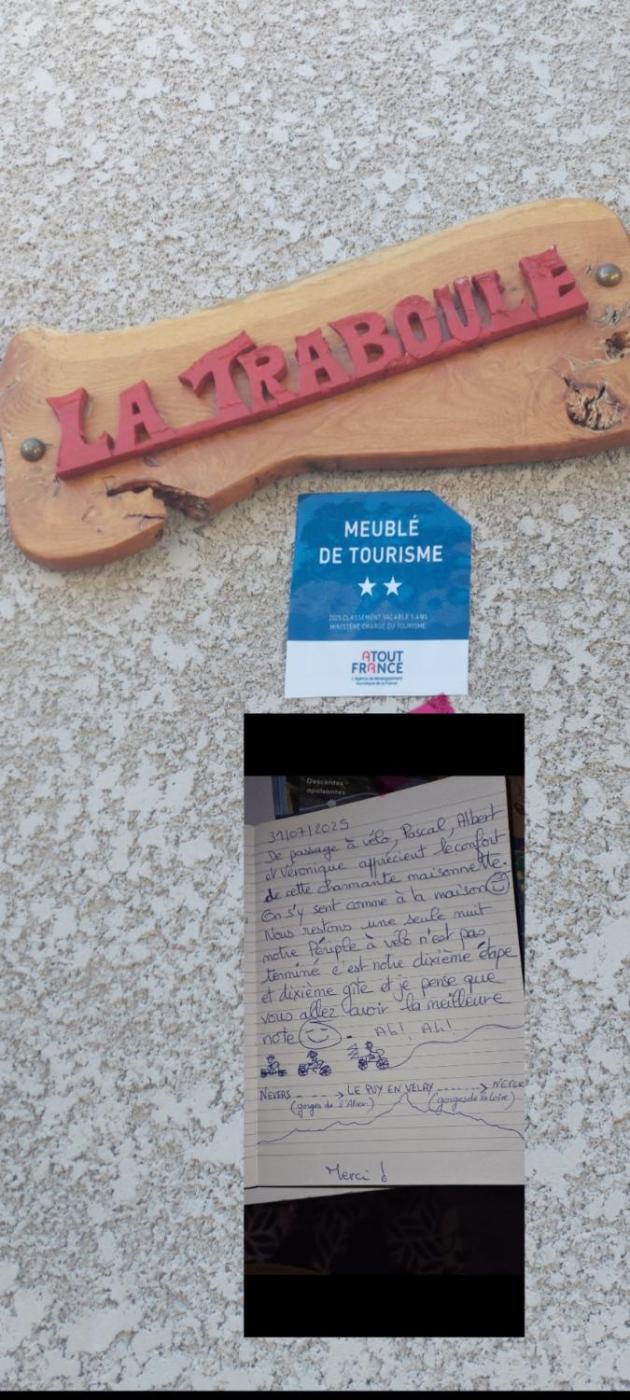 LA TRABOULE
MEUBLÉ
DE TOURISME
2025 CLASSEMENT VALABLE 5 ANS
MINISTÈRE CHARGÉ DU TOURISME
ATOUT
FRANCE
L'Agence de développement
touristique de la France
Descentes
apaisantes
31/07/2025
De passage à vélo, Pascal, Albert
et Véronique apprécient le confort
de cette charmante maisonnette.
On s'y sent comme à la maison
Nous restons une seule nuit
notre Périple à vélo n'est pas
terminé c'est notre dixième étape
et dixième gîte et je pense que
vous allez avoir la meilleure
note. Ah! Ah!
NEVERS ----> LE PUY EN VELAY ----> NEVERS
(gorges de l'Allier) (gorges de la Loire)
Merci !